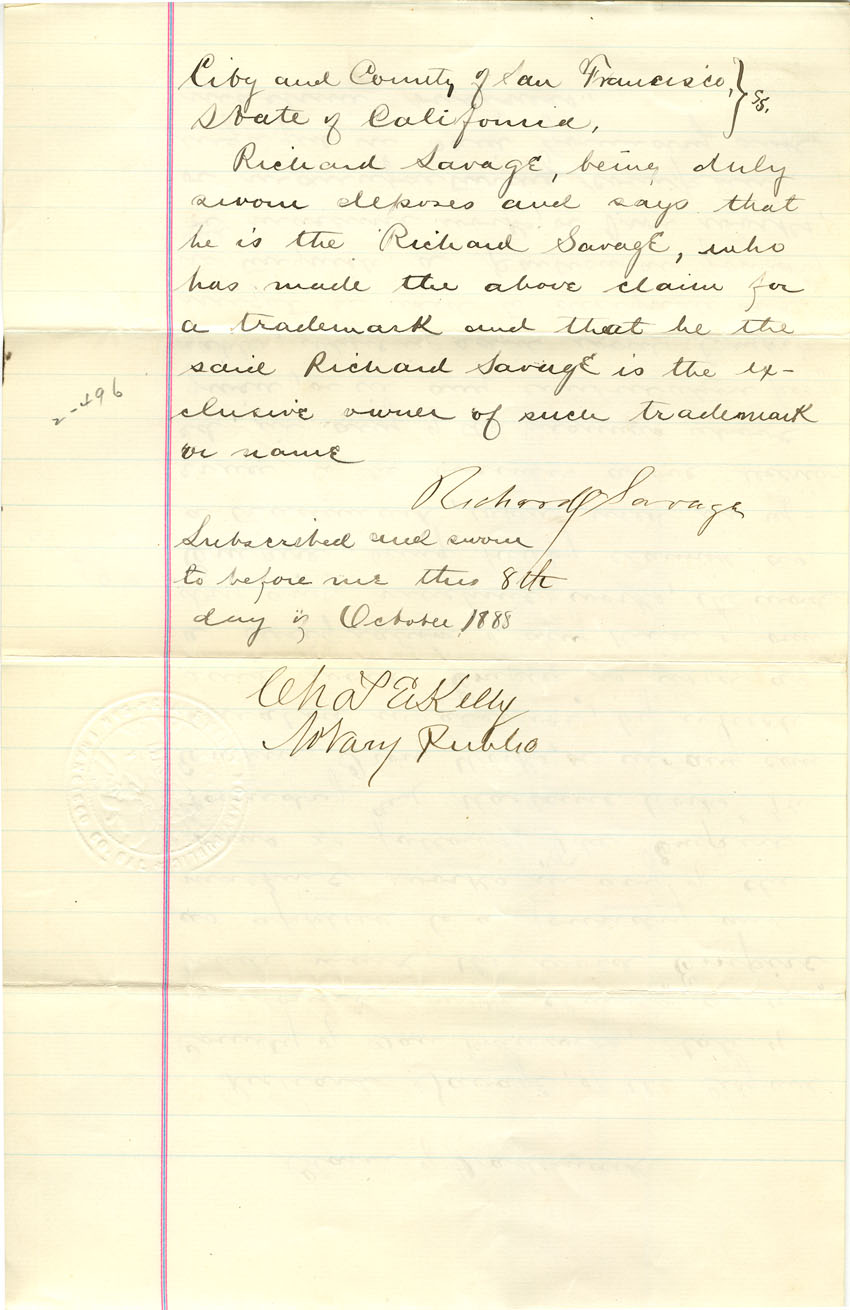 City and County of San Francisco, } ss.
State of California,
Richard Savage, being duly
sworn deposes and says that
he is the Richard Savage, who
has made the above claim for
a trademark and that he the
said Richard Savage is the ex-
clusive owner of such trademark
or name
2-496
Richard Savage
Subscribed and sworn
to before me this 8th
day of October, 1888
Chas E Kelly
Notary Public